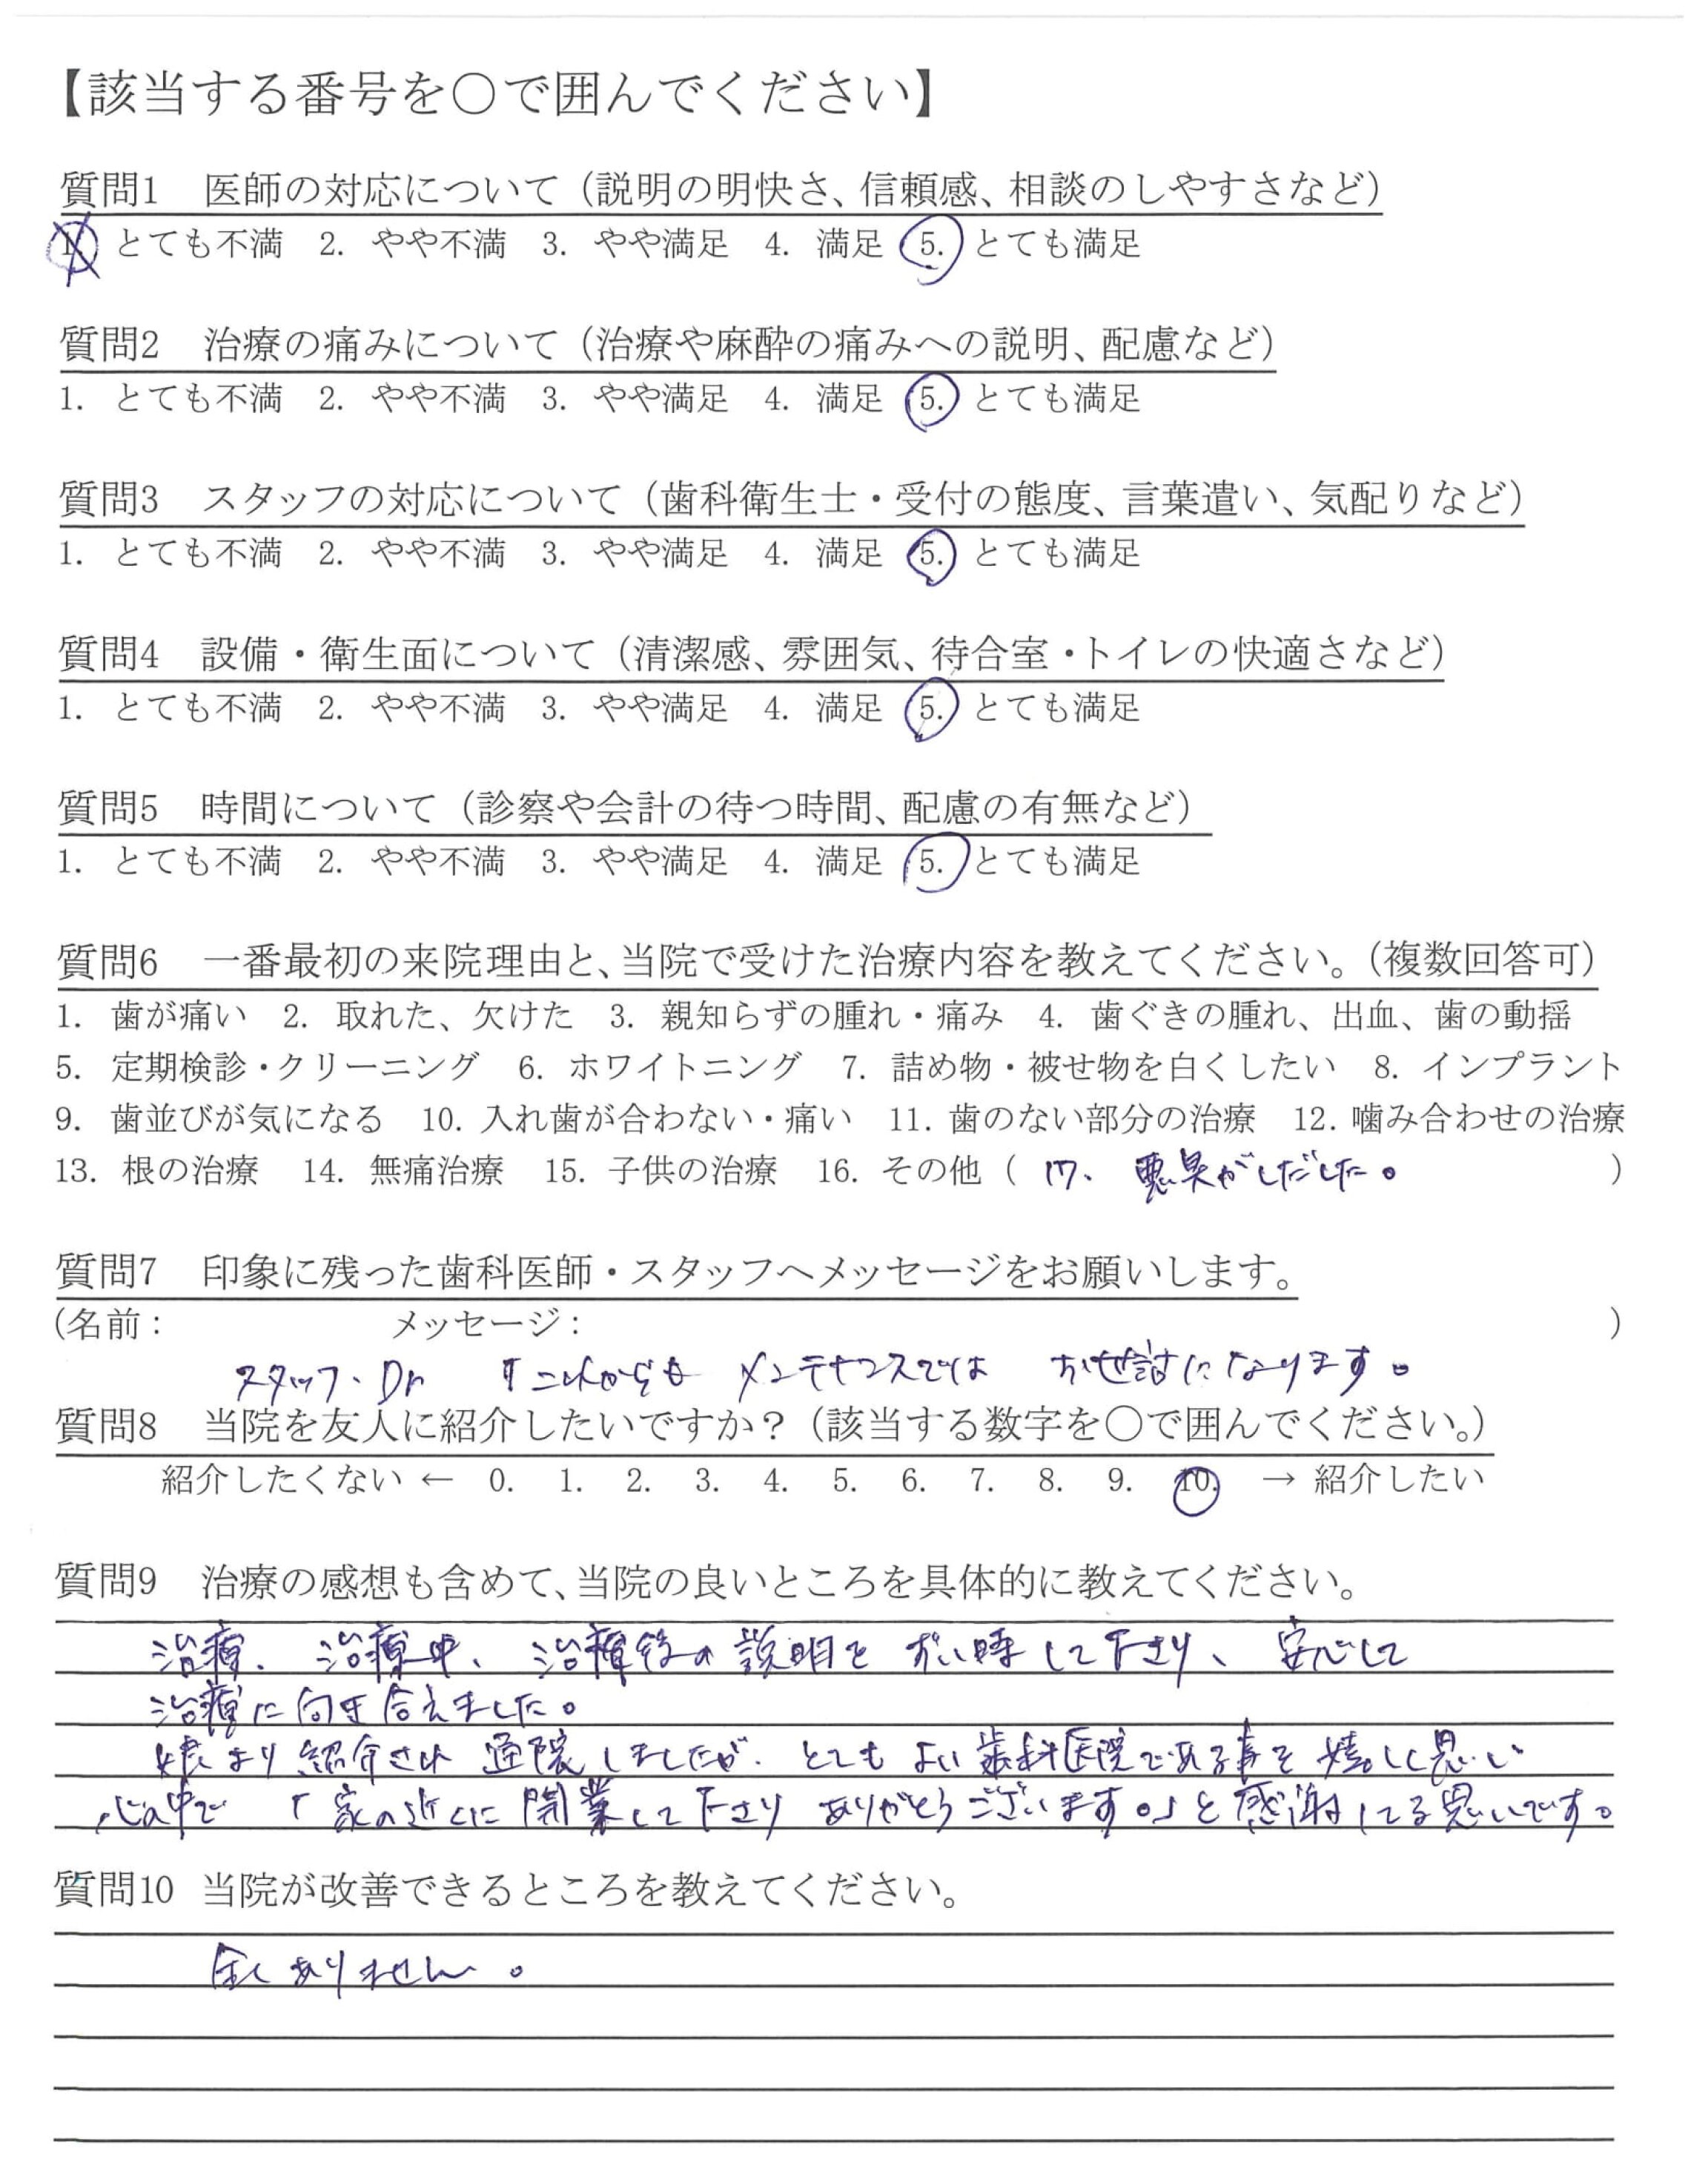 【該当する番号を○で囲んでください】
質問1 医師の対応について（説明の明快さ、信頼感、相談のしやすさなど）
1. とても不満 2. やや不満 3. やや満足 4. 満足 5. とても満足
質問2 治療の痛みについて（治療や麻酔の痛みへの説明、配慮など）
1. とても不満 2. やや不満 3. やや満足 4. 満足 5. とても満足
質問3 スタッフの対応について（歯科衛生士・受付の態度、言葉遣い、気配りなど）
1. とても不満 2. やや不満 3. やや満足 4. 満足 5. とても満足
質問4 設備・衛生面について（清潔感、雰囲気、待合室・トイレの快適さなど）
1. とても不満 2. やや不満 3. やや満足 4. 満足 5. とても満足
質問5 時間について（診察や会計の待つ時間、配慮の有無など）
1. とても不満 2. やや不満 3. やや満足 4. 満足 5. とても満足
質問6 一番最初の来院理由と、当院で受けた治療内容を教えてください。（複数回答可）
1. 歯が痛い 2. 取れた、欠けた 3. 親知らずの腫れ・痛み 4. 歯ぐきの腫れ、出血、歯の動揺
5. 定期検診・クリーニング 6. ホワイトニング 7. 詰め物・被せ物を白くしたい 8. インプラント
9. 歯並びが気になる 10. 入れ歯が合わない・痛い 11. 歯のない部分の治療 12. 噛み合わせの治療
13. 根の治療 14. 無痛治療 15. 子供の治療 16. その他（ 17、 悪臭がしだした。 ）
質問7 印象に残った歯科医師・スタッフへメッセージをお願いします。
(名前： メッセージ： )
スタッフ、Dr これからも メンテナンスでは お世話になります。
質問8 当院を友人に紹介したいですか？（該当する数字を○で囲んでください。）
紹介したくない ← 0. 1. 2. 3. 4. 5. 6. 7. 8. 9. 10. → 紹介したい
質問9 治療の感想も含めて、当院の良いところを具体的に教えてください。
治療、治療中、治療後の説明を 時して下さり、安心して
治療に向き合えました。
娘より紹介され通院しましたが、とてもよい歯科医院である事を嬉しく思い
心の中で「家の近くに開業して下さりありがとうございます。」と感謝してる思いです。
質問10 当院が改善できるところを教えてください。
全くありません。